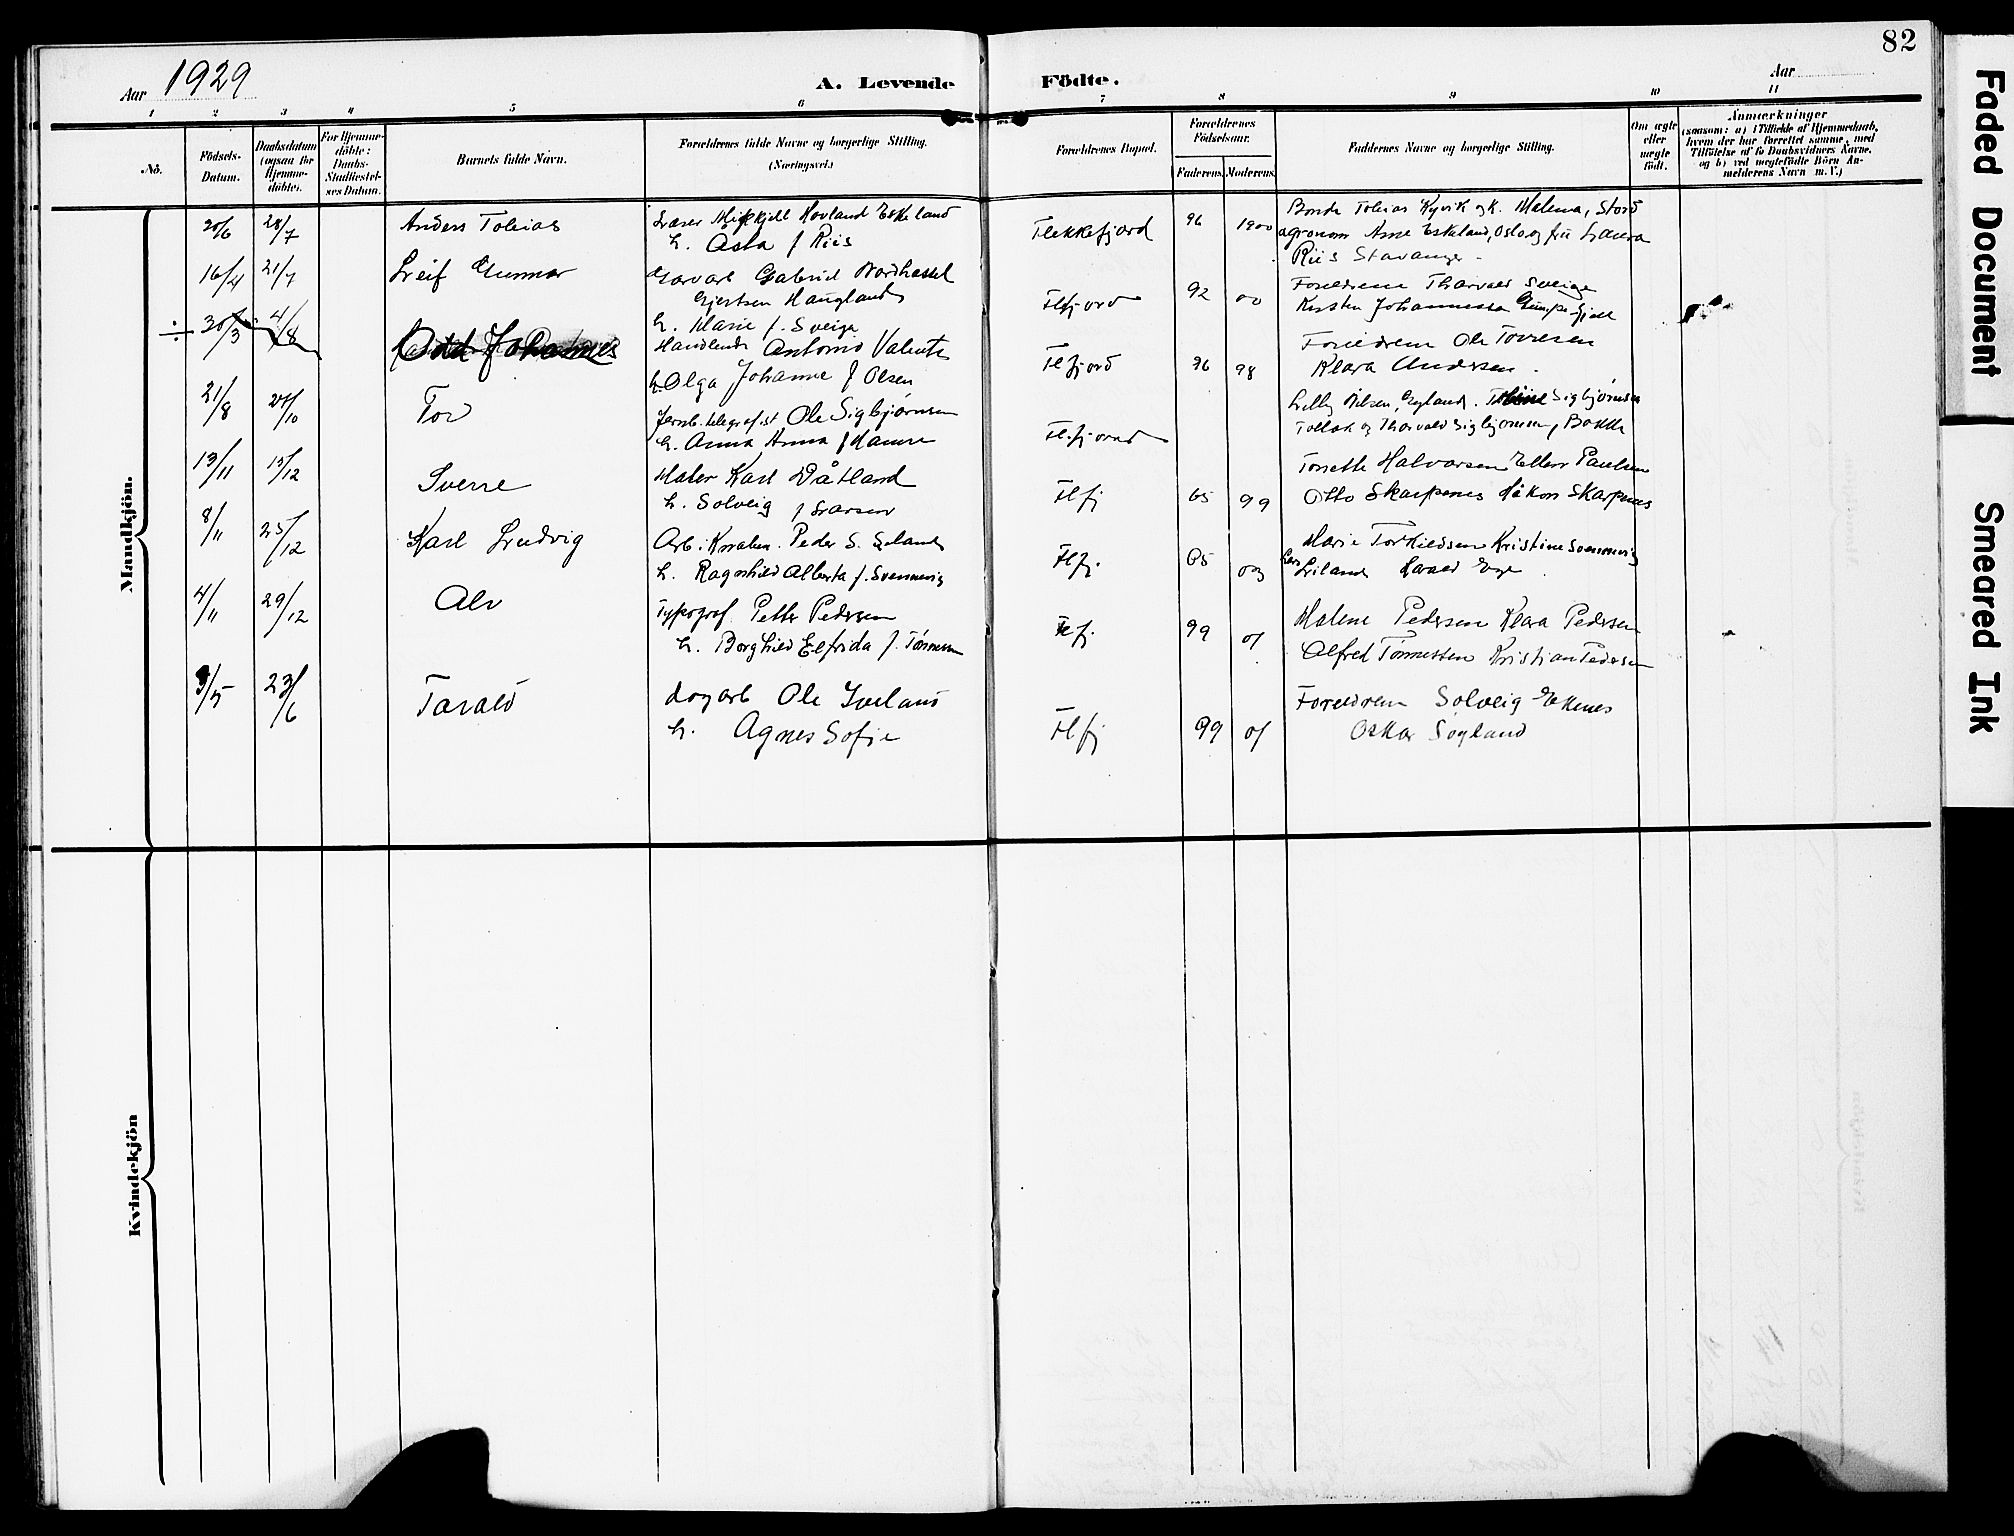 82
Aar 1929
A. Levende Födte.
Aar
1 2 3 4 5 6 7 8 9 10 11
No.
Födsels-Datum.
Daabsdatum (ogsaa for Hjemme-döbte).
For Hjemme-döbte: Daabs-Stadfæstel-ses Datum.
Barnets fulde Navn.
Forældrenes fulde Navne og borgerlige Stilling.
(Næringsvei.)
Forældrenes Bopæl.
Forældrenes Födselsaar.
Faderens. Moderens.
Faddernes Navne og borgerlige Stilling.
Om ægte eller uægte födt.
Anmærkninger
(saasom: a) i Tilfælde af Hjemmedaab,
hvem der har forrettet samme, med
Tilföielse af to Daabsvidners Navne,
og b) ved uægtefödte Börn An-
melderens Navn m. V.)
Mandkjön.
20/6 28/7 Anders Tobias
Hovland Eskeland
h. Asta f Riis
Flekkefjord 96 1900
Bonde Tobias Kyvik og k. Malena, Stord
agronom Arne Eskeland, Oslo og fru Laura
Riis Stavanger
16/4 21/7 Leif Gunnar
Garvarb Gabriel Nordhassel
Gjertsen Haugland
h. Marie f. Sveiga
Flfjord 92 00
Foreldrene Tharvald Sveiga
Kirsten Johannessen
÷ 30/3 4/8 Odd Johannes
Handlende Antonio Valente
h. Olga Johanne f Olsen
Flfjord 96 98
Foreldrene Ole Torresen
Klara Andersen
21/8 27/10 Tor
Jernb. telegrafist Ole Sigbjørnsen
h. Anna f Hamre
Fl.fjord
Lilly Nilsen, Egeland. Sigbjørnsen
Tollak og Thorvald Sigbjørnsen, Bakke
13/11 15/12 Sverre
Maler Karl Dåtland
h. Solveig f Larsen
Flfj 05 99
Tonette Halvorsen Ellen Paulsen
Otto Skarpenes Håkon Skarpenes
8/11 25/12 Karl Ludvig
Arb. Peder S. Eeland
h. Ragnhild Alberta f. Svennevig
Flfj. 05 03
Marie Torkildsen Kristine Svennevig
4/11 29/12 Alv
Typograf Petter Pedersen
h. Borghild Elfrida f. Tønnesen
Flfj. 99 01
Malene Pedersen Klara Pedersen
Alfred Tønnessen Kristian Pedersen
3/5 23/6 Tarald
Ole Iveland
h. Agnes Sofie
Flfj 99 01
Foreldrene Solveig Ekenes
Oskar Søyland
Kvindekjön
Faded Document
Smeared Ink